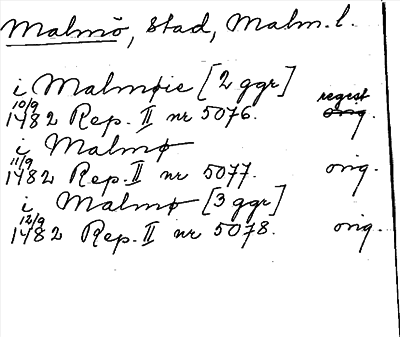 Malmö, stad, Malm. l.
i Malmøie [2 ggr]
10/9 regest
1482 Rep. II nr 5076. orig.
i Malmø
11/9
1482 Rep. II nr 5077. orig.
i Malmø [3 ggr]
12/9
1482 Rep. II nr 5078. orig.